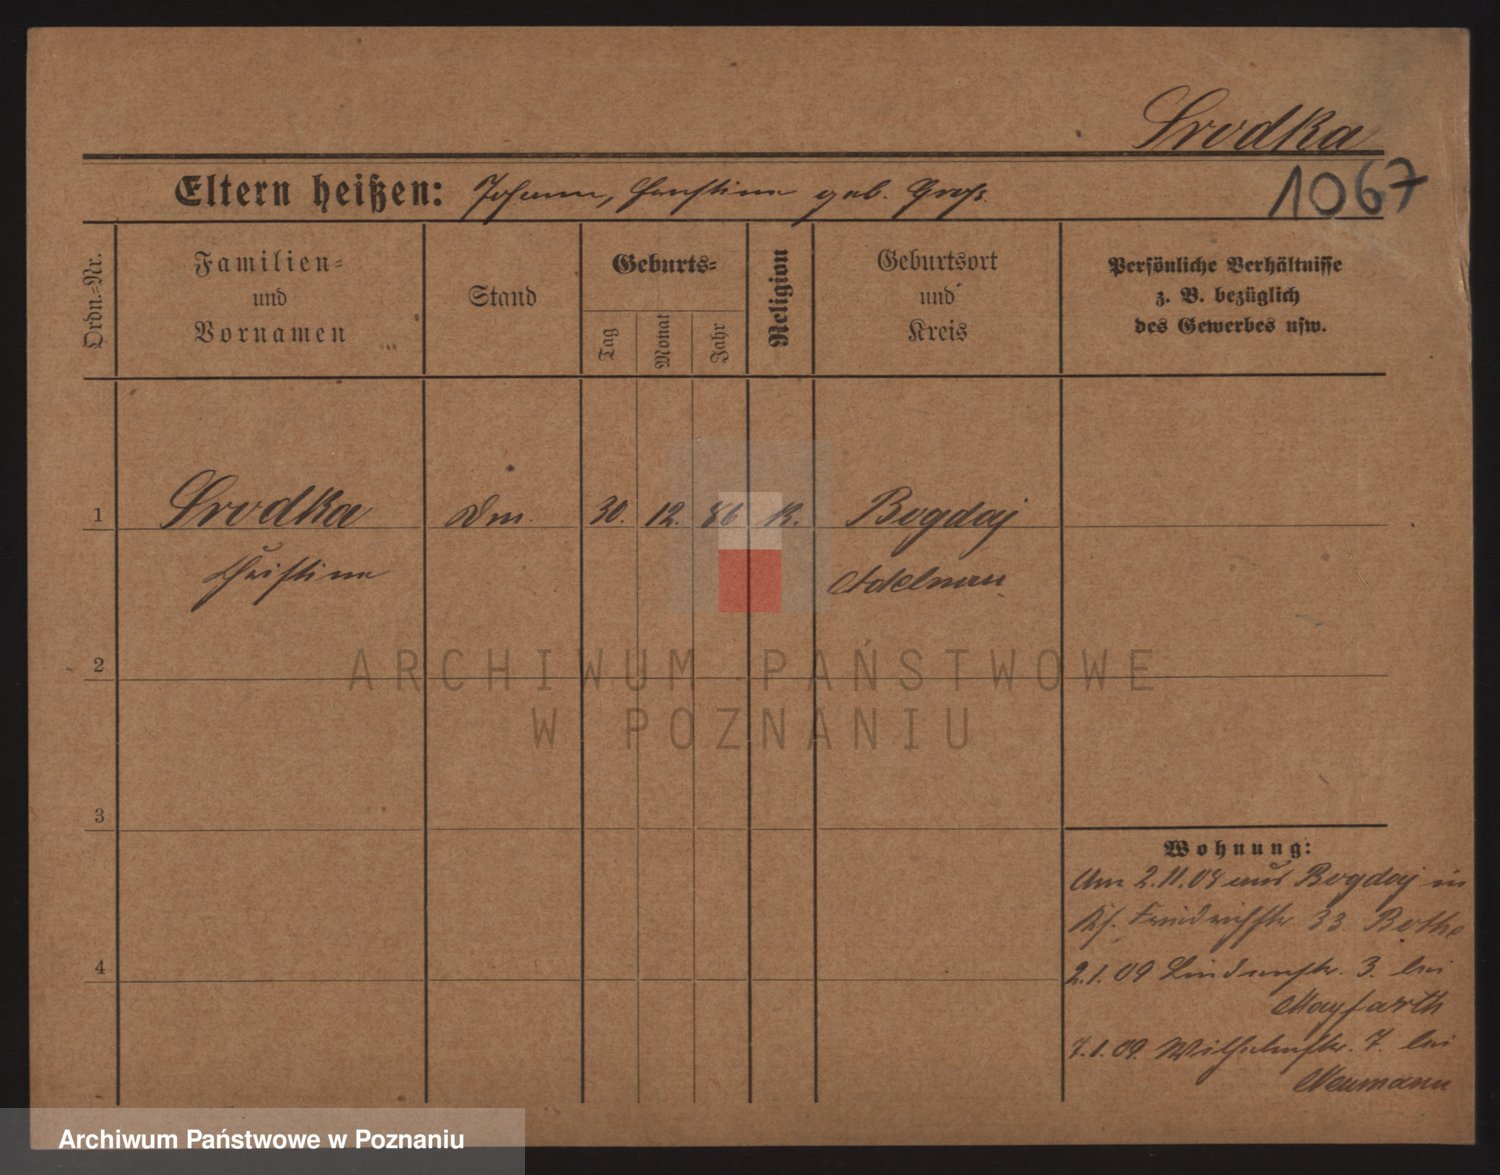 Srodka
1067
Eltern heißen: Johann, Christine geb. Gross
Ordn.-Nr.
Familien-
und
Vornamen
Stand
Geburts-
Tag
Monat
Jahr
Religion
Geburtsort
und
Kreis
Persönliche Verhältnisse
z. B. bezüglich
des Gewerbes usw.
1 Srodka Dm. 30. 12. 86 K. Bogdaj
Christine Adelnau
2
3
4
Wohnung:
Am 2.11.08 aus Bogdaj in
Friedrichstr. 33. Bothe
2.1.09 Lindenstr. 3. bei
Mayfarth
7.1.09. Wilhelmstr. 7. bei
Neumann
ARCHIWUM PAŃSTWOWE
W POZNANIU
Archiwum Państwowe w Poznaniu